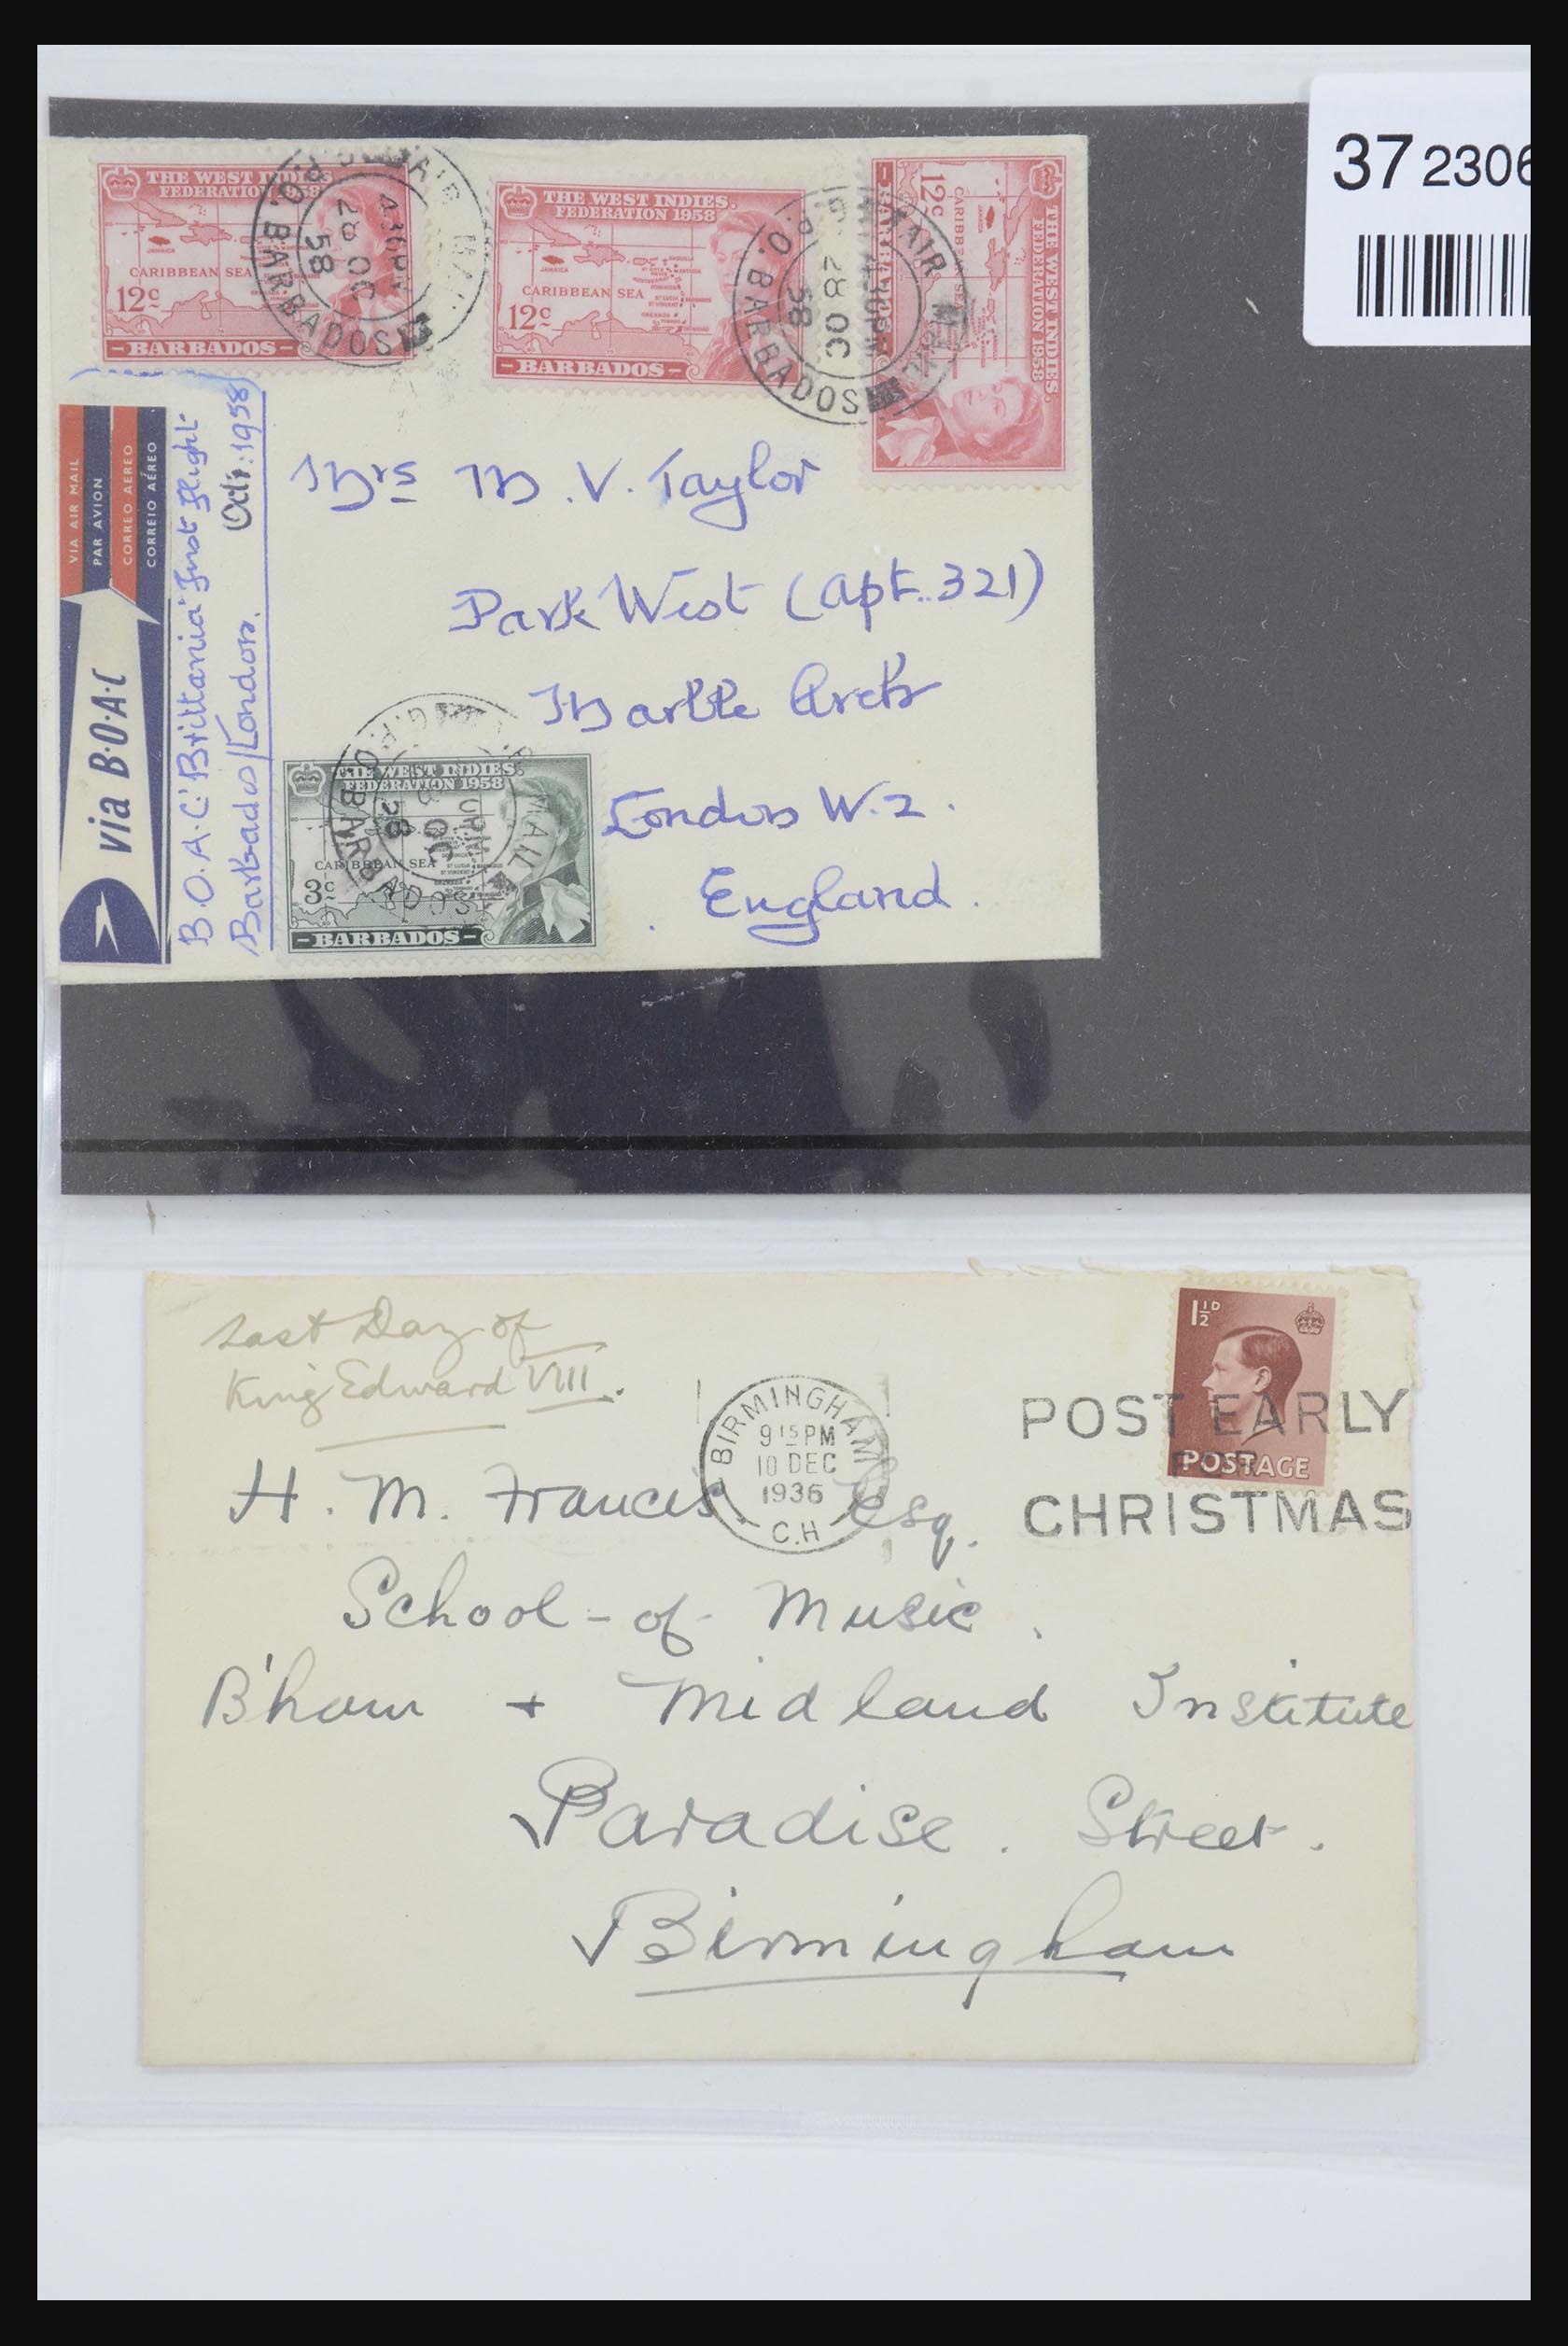 37 2306
THE WEST INDIES
FEDERATION 1958
JAMAICA
CARIBBEAN SEA
12c
BARBADOS
AIR MAIL
G.P.O. BARBADOS
4 30 PM
28 OC
58
THE WEST INDIES.
FEDERATION 1958
JAMAICA
CARIBBEAN SEA
12c
BARBADOS
AIR MAIL
G.P.O. BARBADOS
28 OC
58
THE WEST INDIES.
FEDERATION 1958
CARIBBEAN SEA
12c
BARBADOS
VIA AIR MAIL
PAR AVION
CORREO AEREO
CORREIO AÉREO
via B·O·A·C
B.O.A.C. 'Brittania' First Flight
Barbados/London. Oct: 1958
Mrs M. V. Taylor
Park West (Apt. 321)
Marble Arch
London W.2.
England.
THE WEST INDIES.
FEDERATION 1958
CARIBBEAN SEA
3c
BARBADOS
MAIL
G.P.O. BARBADOS
OC
58
Last Day of
King Edward VIII.
1½D
POSTAGE
BIRMINGHAM
9 15 PM
10 DEC
1936
C.H
POST EARLY
FOR
CHRISTMAS
H. M. Francis Esq.
School-of-Music.
B'ham + Midland Institute
Paradise. Street.
Birmingham